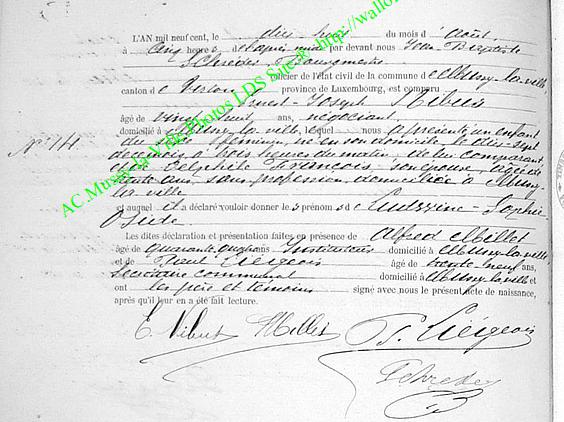 L'AN mil neuf cent, le dix huit du mois d'Août
à cinq heures d après midi par devant nous Jean Baptiste
Schreder, Bourgmestre
officier de l'état civil de la commune de Mussy-la-ville
canton de Virton province de Luxembourg, est comparu
Ernest-Joseph
âgé de vingt huit ans, négociant
domicilié à Mussy la ville, lequel nous a présenté un enfant
N° 14
du sexe féminin, né en son domicile le dix-sept
du mois à trois heures du matin, de lui comparant,
et de Delphine François son épouse, âgée de
ans, sans profession domiciliée à Mussy-
la ville
et auquel il a déclaré vouloir donner les prénoms de Ludwine-Sophie
Les dites déclaration et présentation faites en présence de Alfred Millet
âgé de quarante ans Instituteur domicilié à Mussy-la-ville
et de Paul Liégeois âgé de trente neuf ans,
secrétaire communal domicilié à Mussy-la-ville et
ont les père et témoins signé avec nous le présent acte de naissance,
après qu'il leur en a été fait lecture.
Millet P. Liégeois
Schreder
AC.Mussy-la-Ville Photos LDS Site® http://wallo